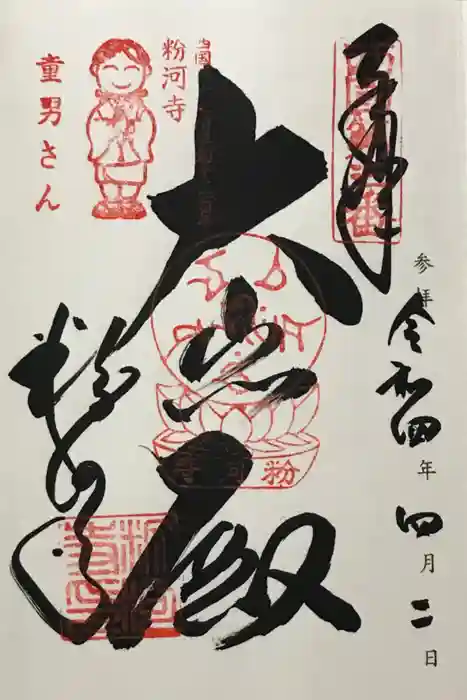 奉拝
参拝
令和四年四月二日
大悲殿
粉河寺
粉河寺
童男さん
粉河寺